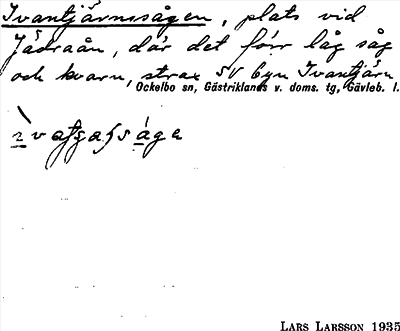 Ivantjärnssågen, plats vid
Jädraån, där det förr låg såg
och kvarn, strax SV byn Ivantjärn
Ockelbo sn, Gästriklands v. doms. tg, Gävleb. l.
LARS LARSSON 1935